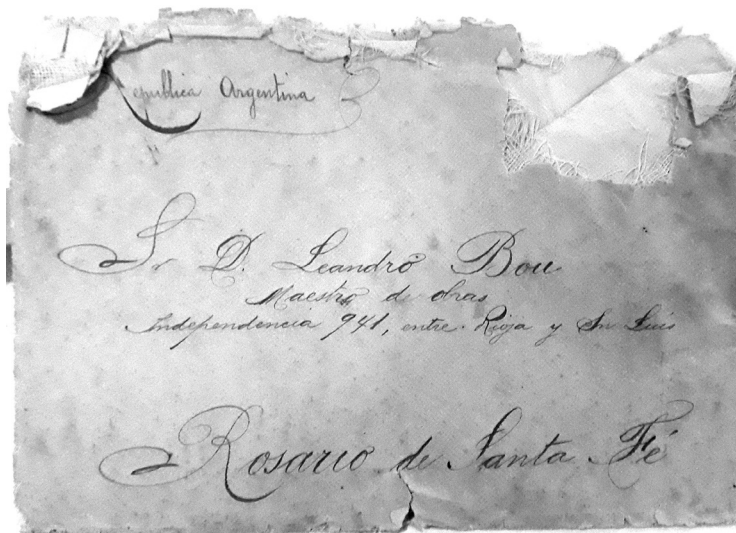 epublica Argentina
Sr D. Leandro Bou
Maestro de obras
Independencia 941, entre Rioja y Sn Luis
Rosario de Santa Fé